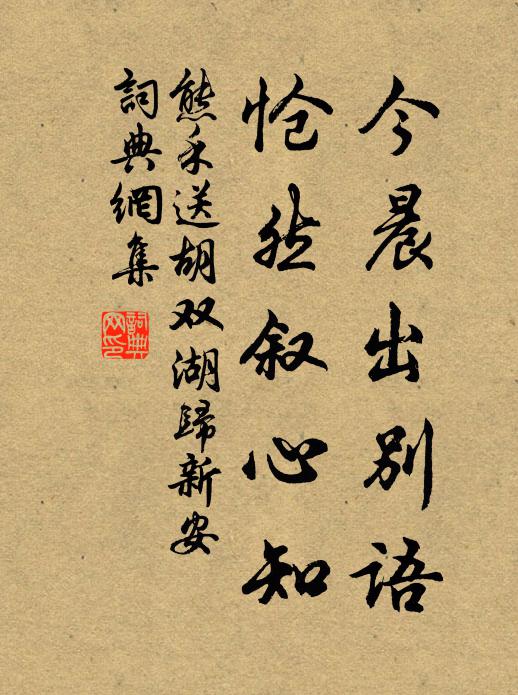 今晨出别語
怆然叙心知
熊禾送胡双湖歸新安
詞典網集
詞典網印